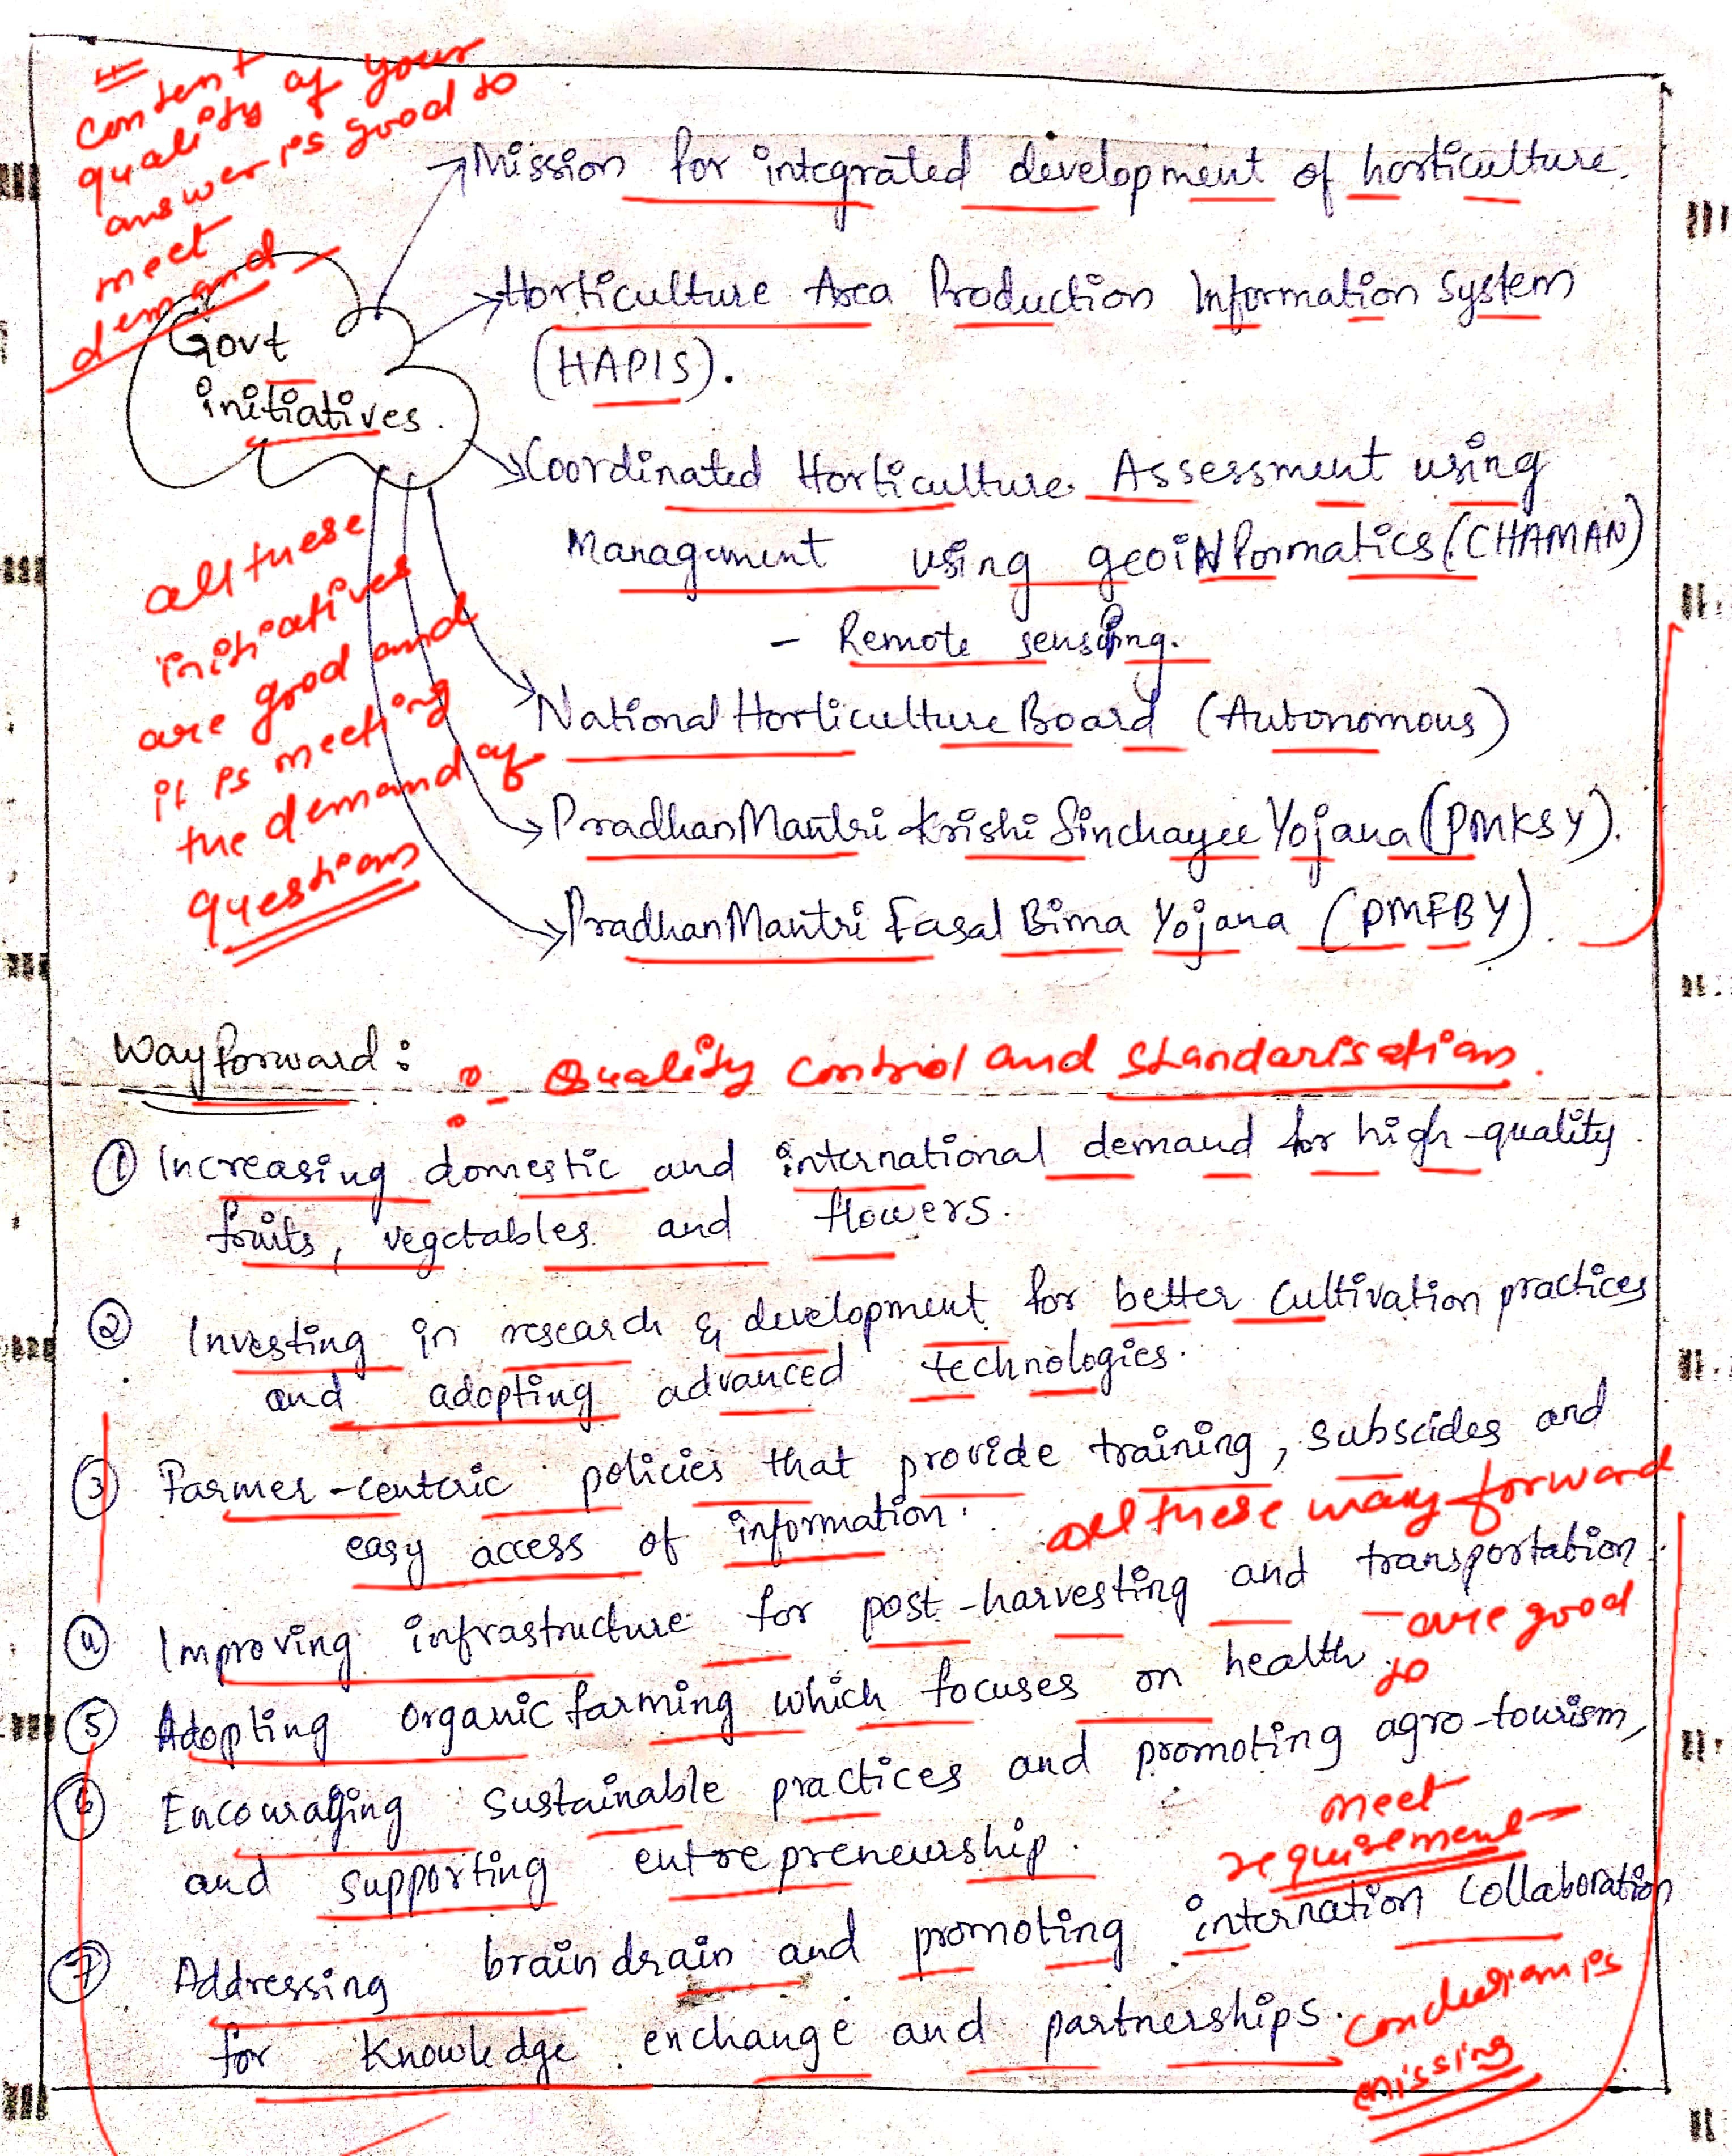 content
quality of your
answer is good to
meet
demand
Mission for integrated development of horticulture.
Horticulture Area Production Information System
(HAPIS).
Govt
initiatives.
Coordinated Horticulture Assessment using
Management using geoinformatics (CHAMAN)
- Remote sensing.
all these
initiatives
are good and
it is meeting
the demand of
question
National Horticulture Board (Autonomous)
Pradhan Mantri Krishi Sinchayee Yojana (PMKSY).
Pradhan Mantri Fasal Bima Yojana (PMFBY).
Way forward:
- Quality control and standarisation.
① Increasing domestic and international demand for high-quality
fruits, vegetables and flowers.
② Investing in research & development for better cultivation practices
and adopting advanced technologies.
③ Farmer-centric policies that provide training, subscides and
easy access of information.
all these way forward
④ Improving infrastructure for post-harvesting and transportation.
- are good
to
⑤ Adopting organic farming which focuses on health.
⑥ Encouraging sustainable practices and promoting agro-tourism,
and supporting entrepreneurship.
meet
requirement
⑦ Addressing brain drain and promoting internation collaboration
for knowledge exchange and partnerships.
conclusion is
missing